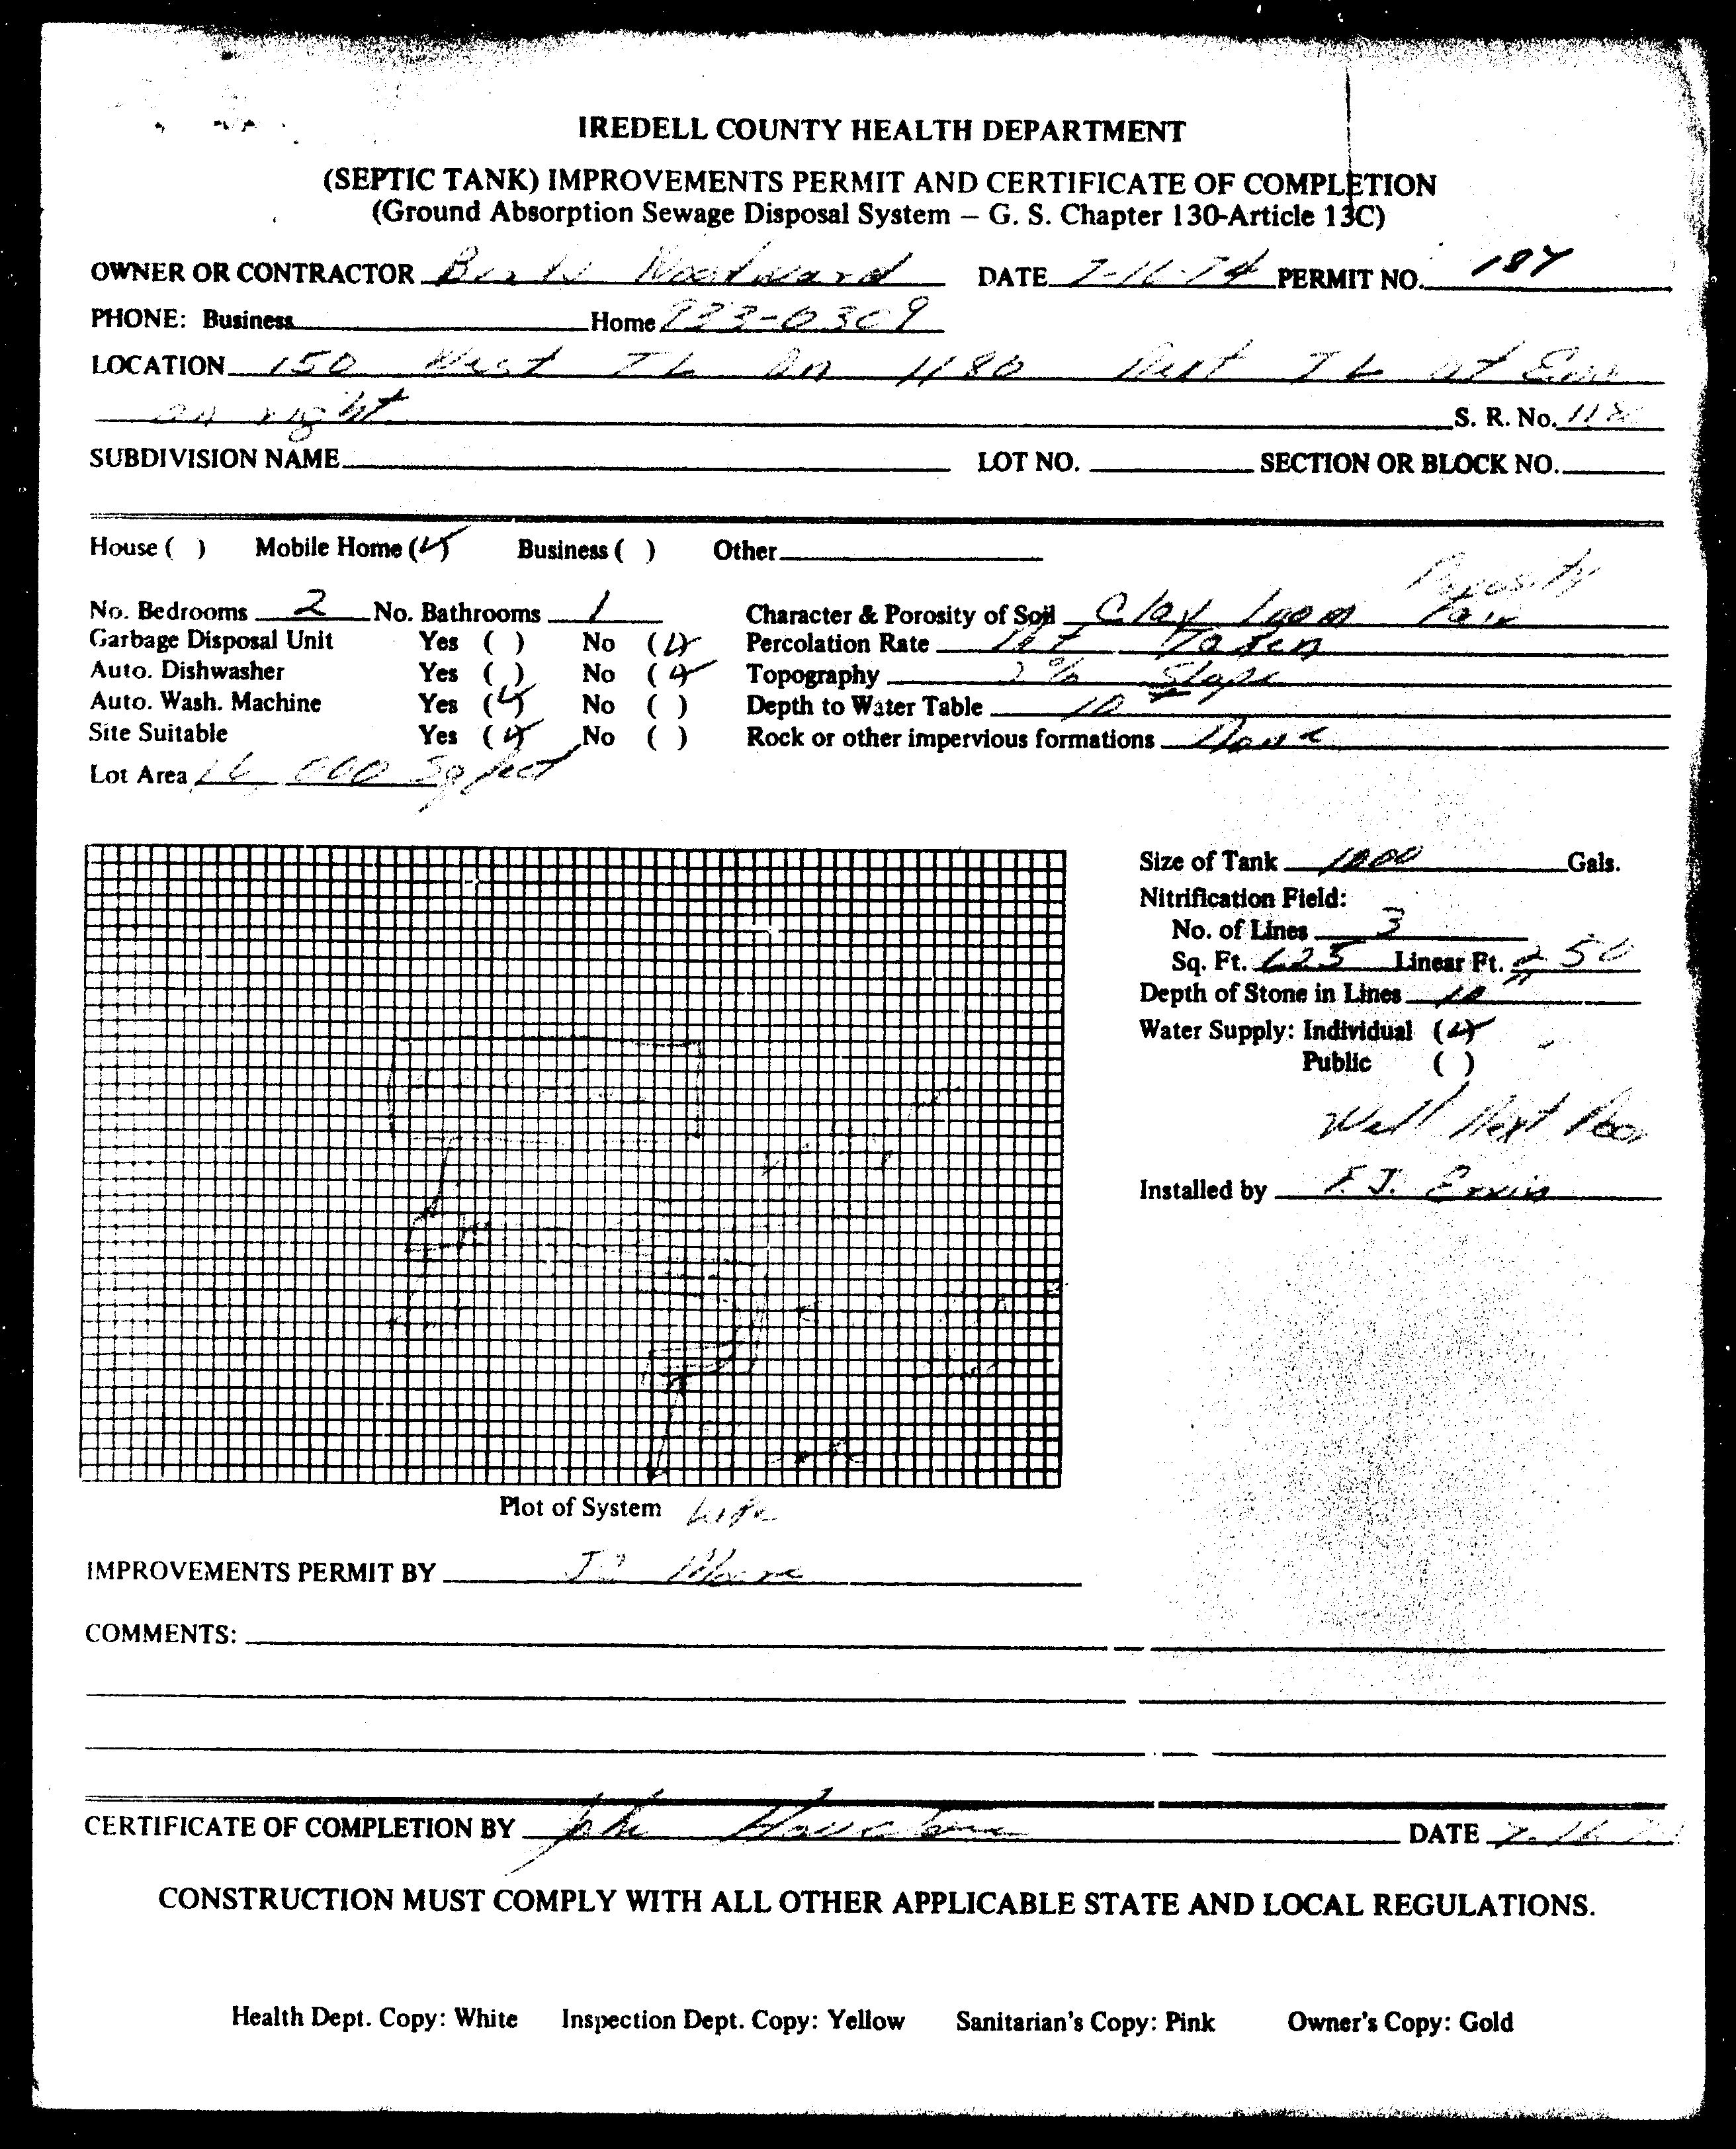 IREDELL COUNTY HEALTH DEPARTMENT
(SEPTIC TANK) IMPROVEMENTS PERMIT AND CERTIFICATE OF COMPLETION
(Ground Absorption Sewage Disposal System – G. S. Chapter 130-Article 13C)
OWNER OR CONTRACTOR Woodward DATE PERMIT NO. 187
PHONE: Business Home
LOCATION 150 West TL on 1180 TL at
on right S. R. No.
SUBDIVISION NAME LOT NO. SECTION OR BLOCK NO.
House ( ) Mobile Home (✓) Business ( ) Other
Porosity
No. Bedrooms 2 No. Bathrooms 1 Character & Porosity of Soil Clay Loam Fair
Garbage Disposal Unit Yes ( ) No (✓) Percolation Rate Not Taken
Auto. Dishwasher Yes ( ) No (✓) Topography 2% Slope
Auto. Wash. Machine Yes (✓) No ( ) Depth to Water Table 10
Site Suitable Yes (✓) No ( ) Rock or other impervious formations None
Lot Area 16,000 Sq feet
Size of Tank 1000 Gals.
Nitrification Field:
No. of Lines 3
Sq. Ft. 625 Linear Ft. 250
Depth of Stone in Lines 10"
Water Supply: Individual (✓)
Public ( )
Well Next Door
Installed by F.J. Ervin
Plot of System
IMPROVEMENTS PERMIT BY Moore
COMMENTS:
CERTIFICATE OF COMPLETION BY DATE
CONSTRUCTION MUST COMPLY WITH ALL OTHER APPLICABLE STATE AND LOCAL REGULATIONS.
Health Dept. Copy: White Inspection Dept. Copy: Yellow Sanitarian's Copy: Pink Owner's Copy: Gold